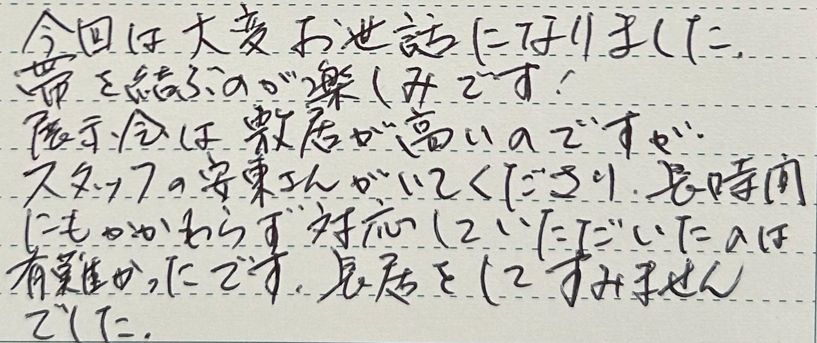 今回は大変お世話になりました。
帯を結ぶのが楽しみです!
展示会は敷居が高いのですが、
スタッフの安東さんがいてくださり、長時間
にもかかわらず対応していただいたのは
有難かったです。長居をしてすみません
でした。